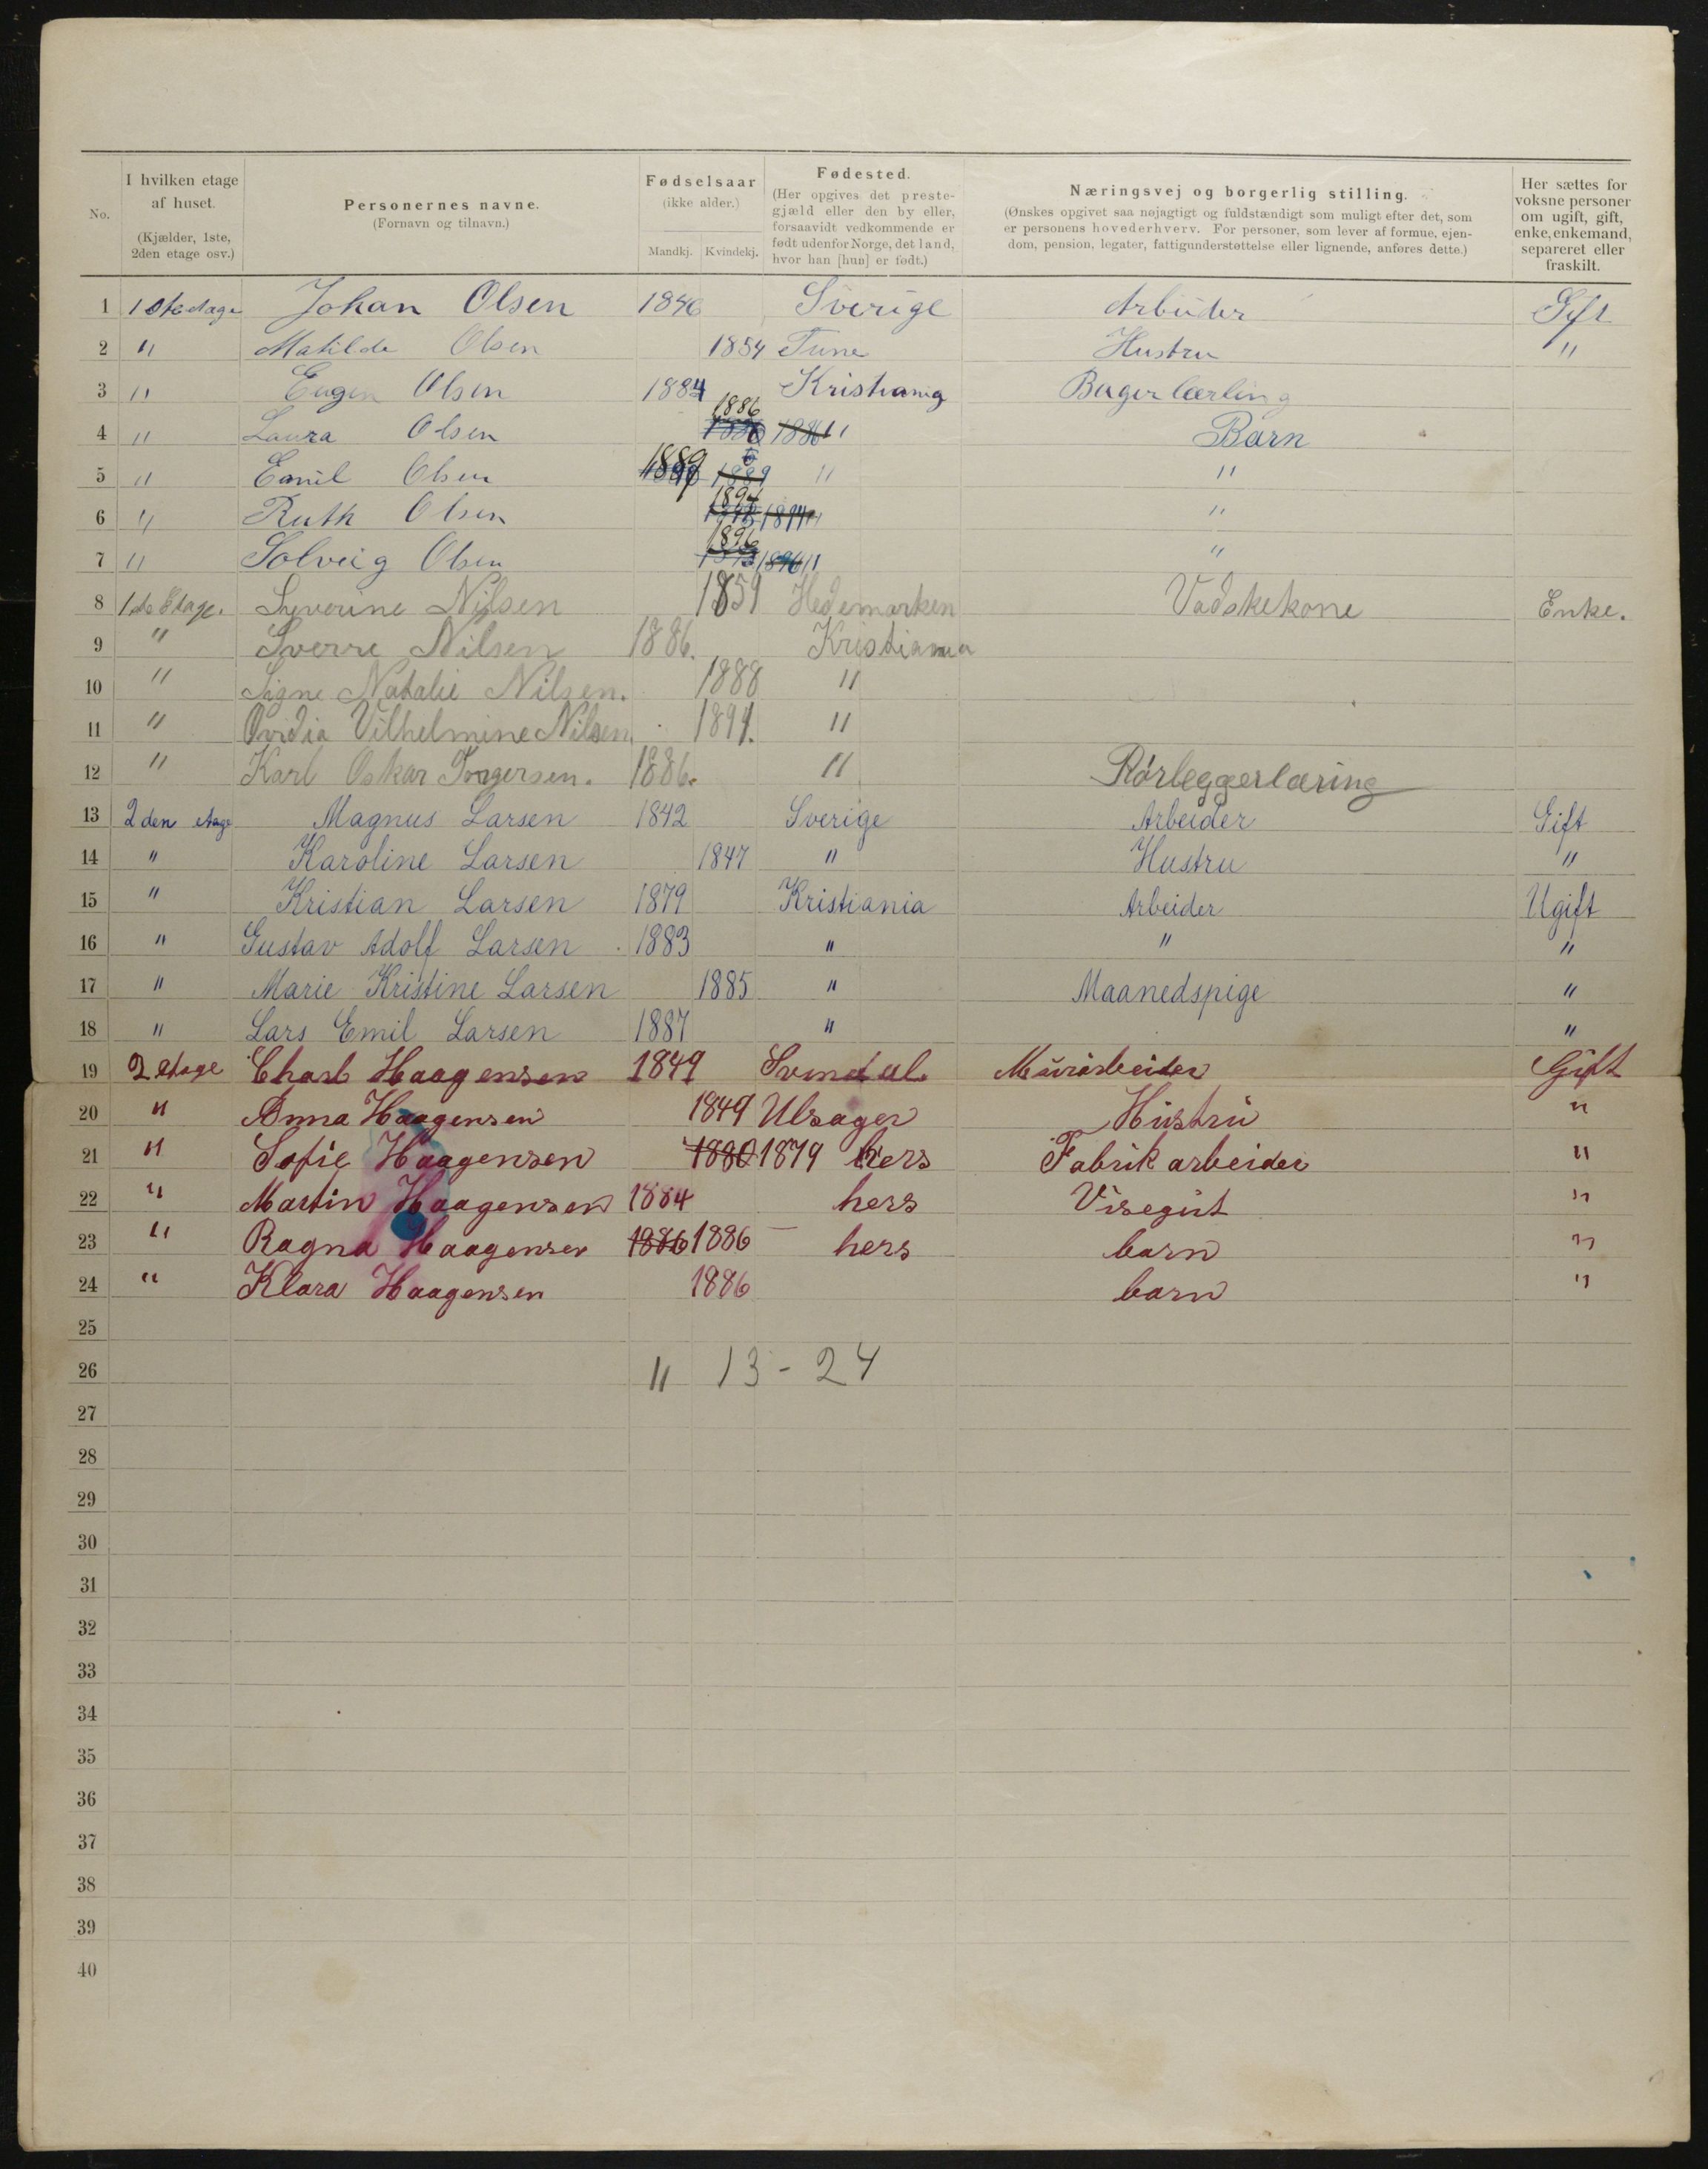 No. | I hvilken etage af huset. (Kjælder, 1ste, 2den etage osv.) | Personernes navne. (Fornavn og tilnavn.) | Fødselsaar (ikke alder.) Mandkj. Kvindekj. | Fødested. (Her opgives det prestegjæld eller den by eller, forsaavidt vedkommende er født udenfor Norge, det land, hvor han [hun] er født.) | Næringsvej og borgerlig stilling. (Ønskes opgivet saa nøjagtigt og fuldstændigt som muligt efter det, som er personens hovederhverv. For personer, som lever af formue, ejendom, pension, legater, fattigunderstøttelse eller lignende, anføres dette.) | Her sættes for voksne personer om ugift, gift, enke, enkemand, separeret eller fraskilt.
1 1ste etage Johan Olsen 1846 Sverige Arbeider Gift
2 " Matilde Olsen 1854 Tune Hustru "
3 " Eugen Olsen 1884 Kristiania Bagerlærling
4 " Laura Olsen 1886 1886 " Barn
5 " Emil Olsen 1889 1889 " "
6 " Ruth Olsen 1894 1894 " "
7 " Solveig Olsen 1896 1896 " "
8 1ste Etage. Syverine Nilsen 1859 Hedemarken Vadskekone Enke.
9 " Sverre Nilsen 1886. Kristiania
10 " Signe Natalie Nilsen. 1888 "
11 " Ovidia Vilhelmine Nilsen 1891. "
12 " Karl Oskar Torgersen. 1886. " Rørleggerlæring
13 2den etage Magnus Larsen 1842 Sverige Arbeider Gift
14 " Karoline Larsen 1847 " Hustru "
15 " Kristian Larsen 1879 Kristiania Arbeider Ugift
16 " Gustav Adolf Larsen 1883 " " "
17 " Marie Kristine Larsen 1885 " Maanedspige "
18 " Lars Emil Larsen 1887 " "
19 2 etage Charl Haagensen 1849 Svindal Murarbeider Gift
20 " Anna Haagensen 1849 Ulsager Hustru "
21 " Sofie Haagensen 1880 1879 hers Fabrik arbeider "
22 " Martin Haagensen 1884 hers Visegut "
23 " Ragna Haagensen 1886 1886 — hers barn "
24 " Klara Haagensen 1886 barn "
25
26 " 13 - 24
27
28
29
30
31
32
33
34
35
36
37
38
39
40